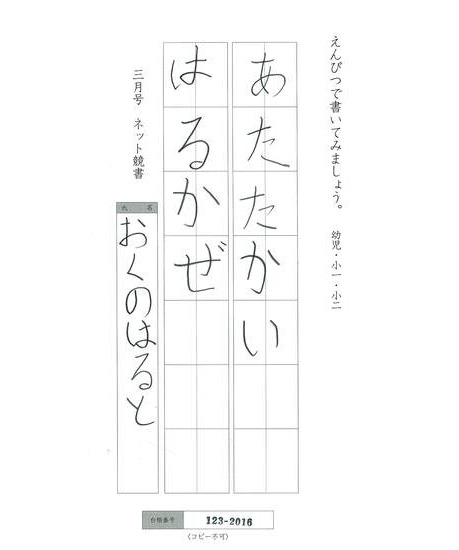 えんぴつで書いてみましょう。 幼児・小一・小二
あたたかい
はるかぜ
三月号 ネット競書
氏 名
おくのはると
合格番号 123-2016
(コピー不可)